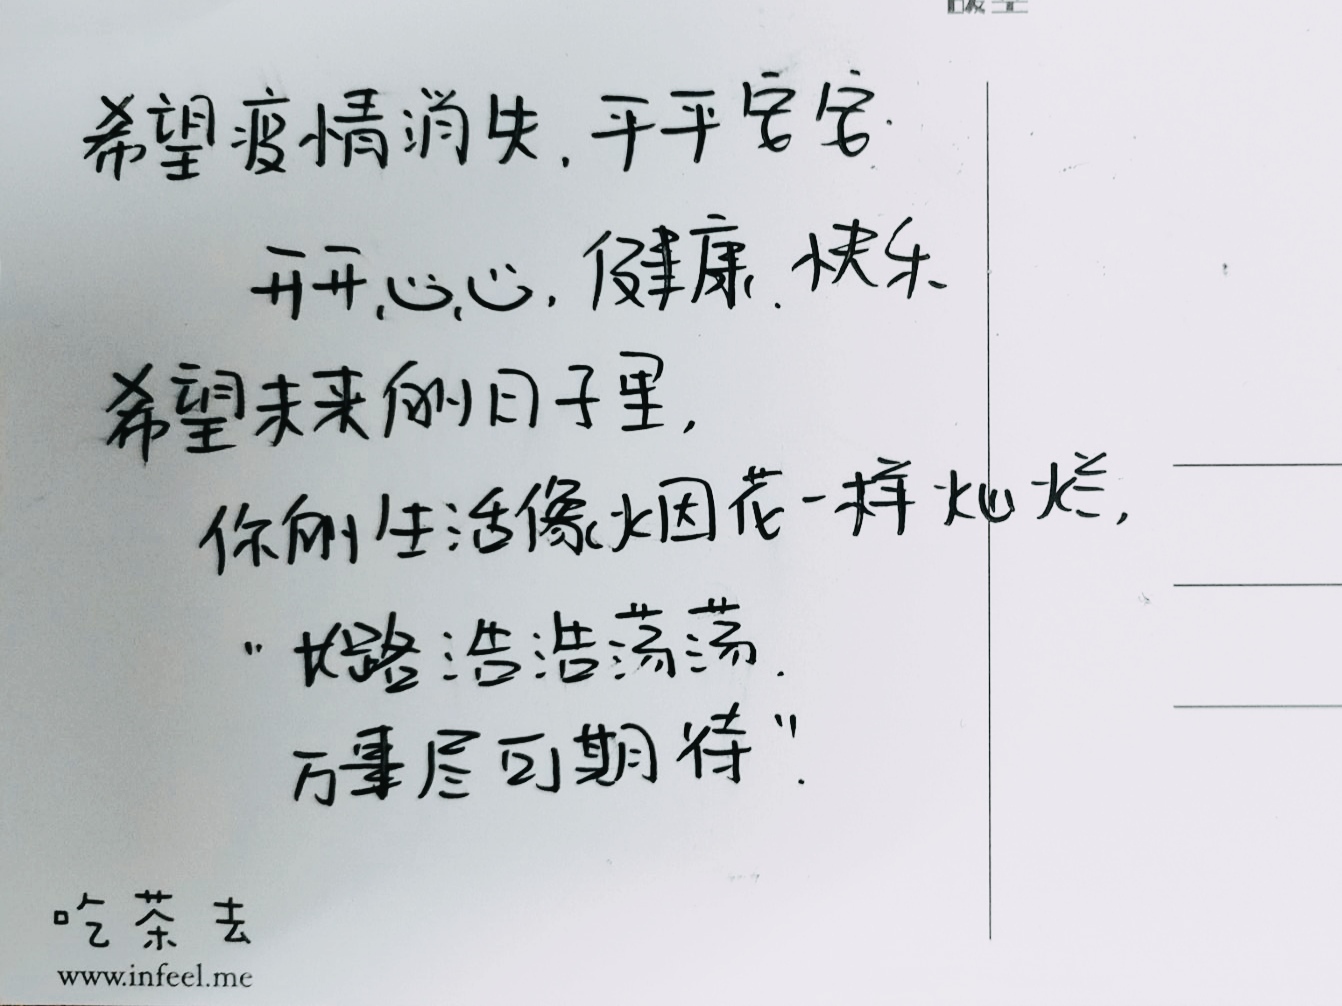 希望疫情消失，平平安安.
开开心心，健康、快乐
希望未来的日子里，
你的生活像烟花一样灿烂，
“长路浩浩荡荡.
万事尽可期待”.
吃茶去
www.infeel.me